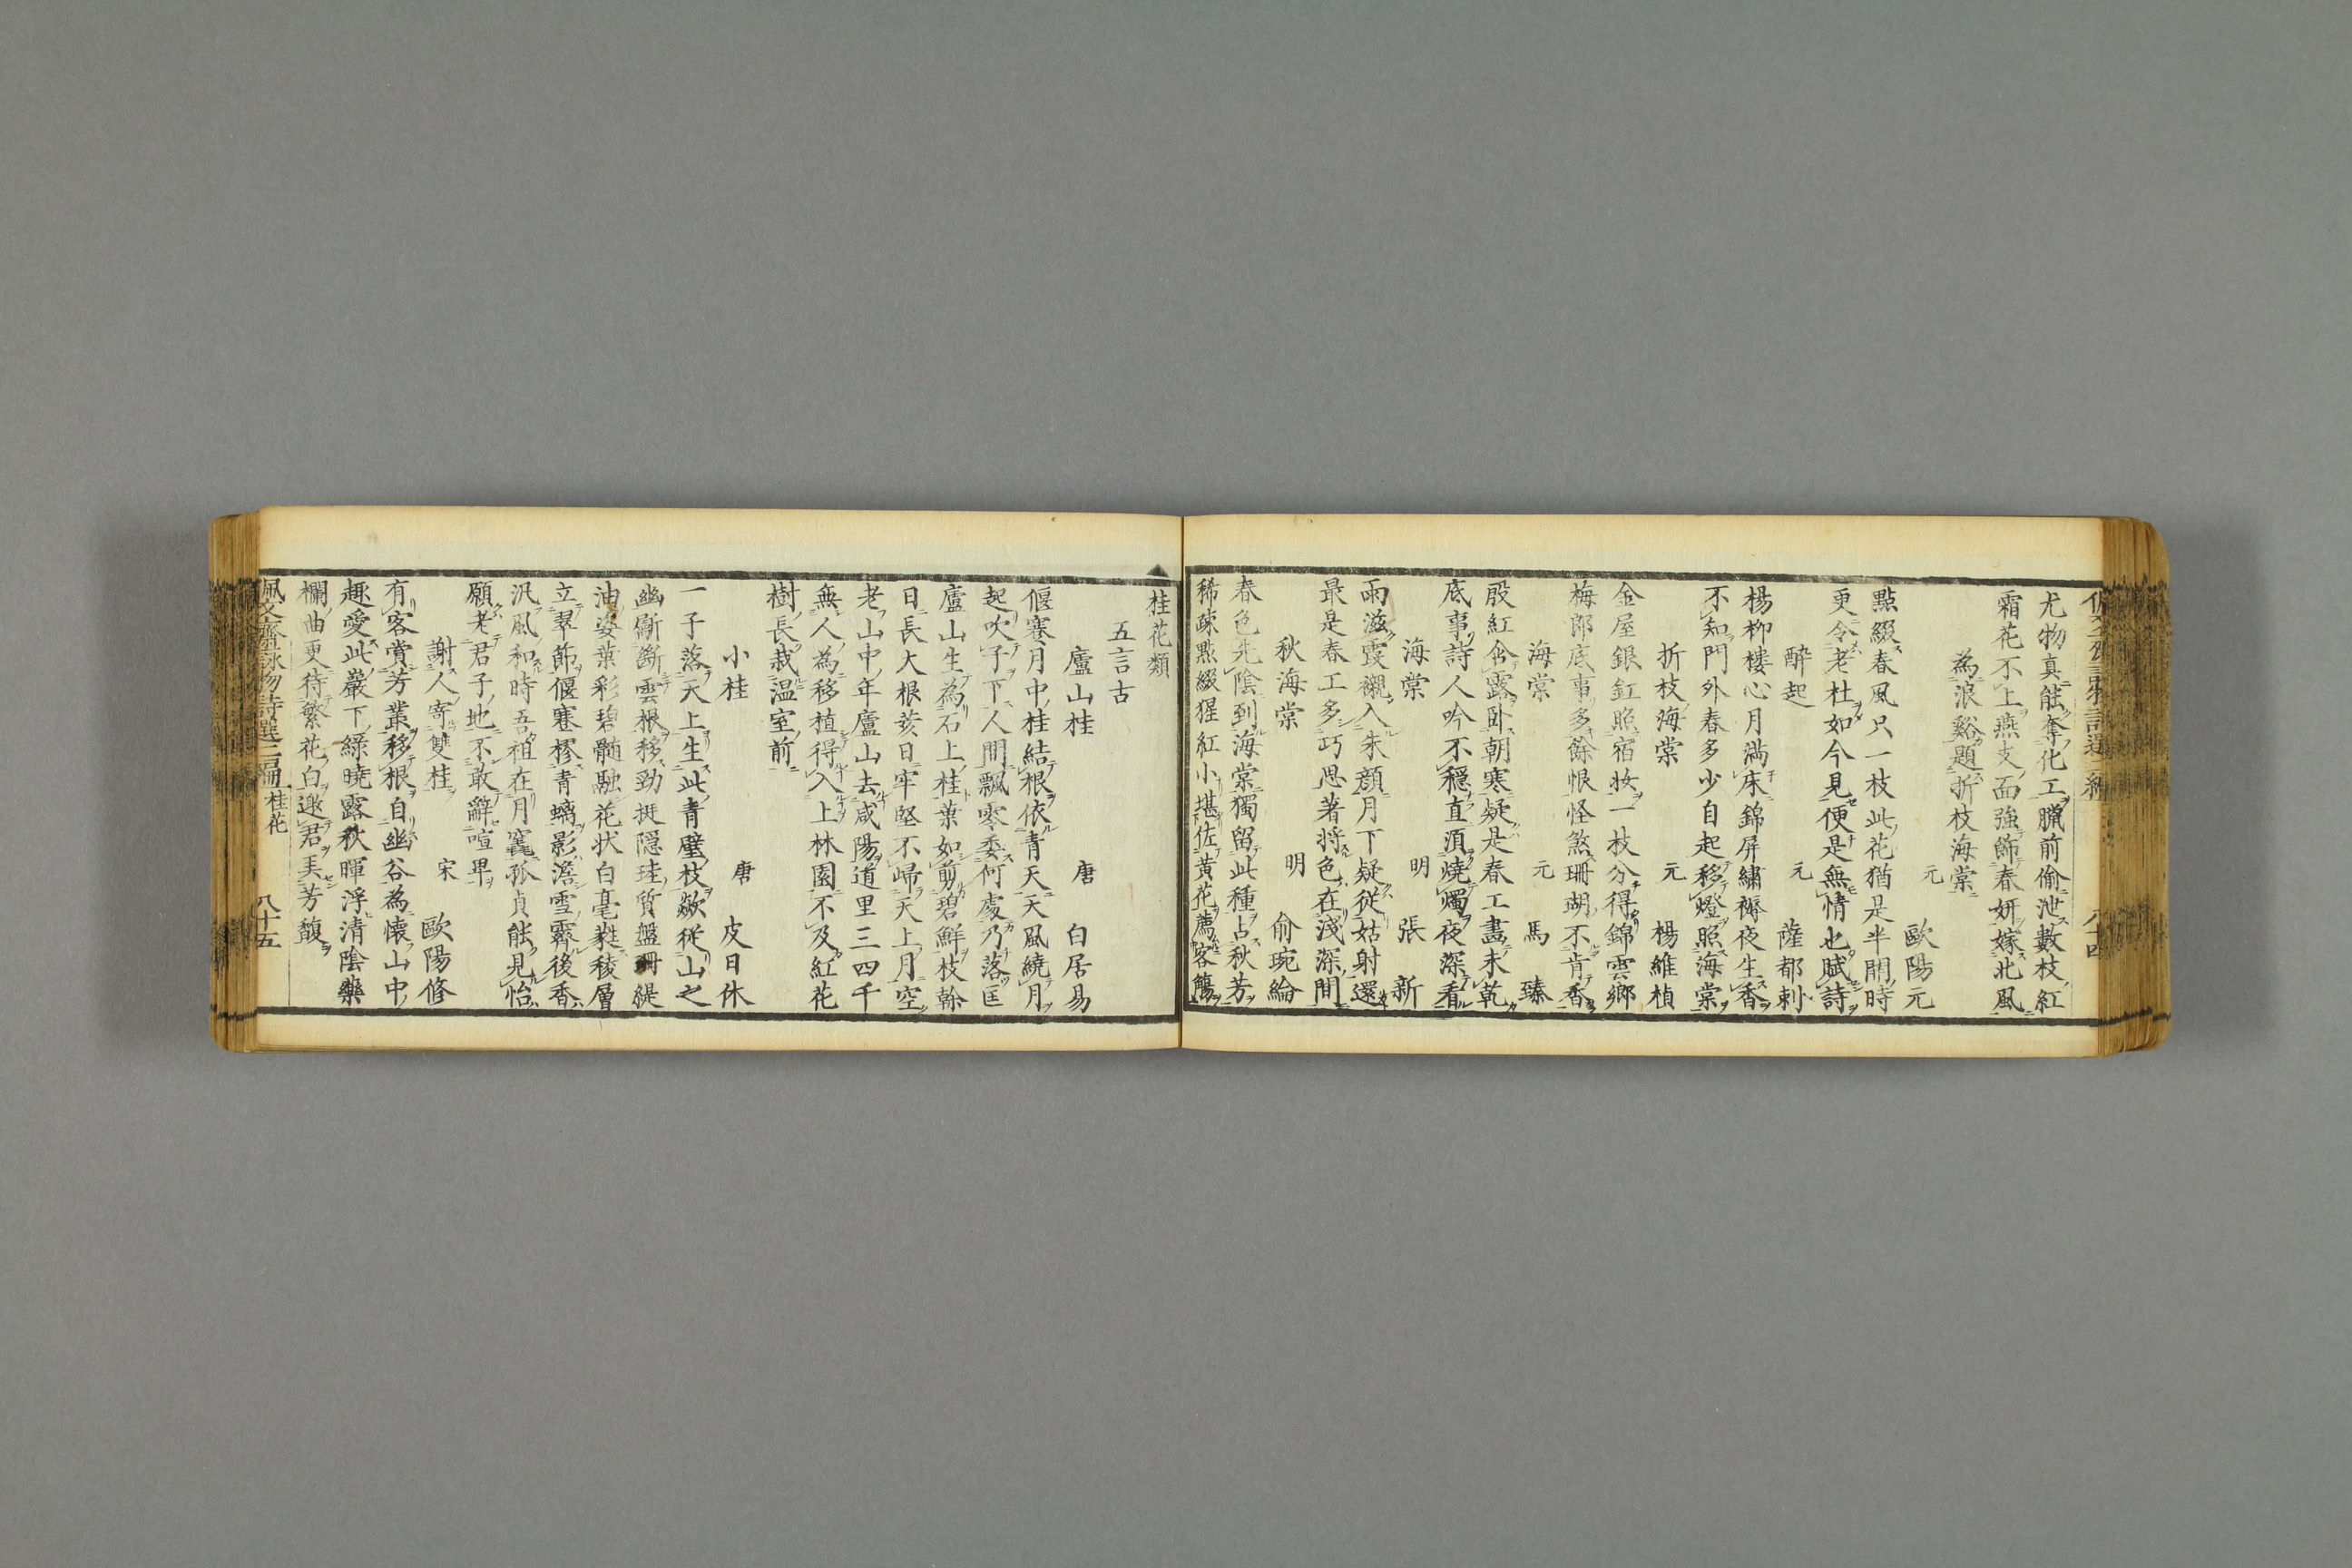 尤物真能奪化工臘前偷泄數枝紅
霜花不上燕支面強飾春妍嫁北風
為浪谿題折枝海棠
元 歐陽元
點綴春風只一枝此花猶是半開時
更令老杜如今見便是無情也賦詩
醉起 元 薩都剌
楊柳樓心月滿床錦屏繡褥夜生香
不知門外春多少自起移燈照海棠
折枝海棠 元 楊維楨
金屋銀釭照宿妝一枝分得錦雲鄉
梅郎底事多餘恨怪煞珊瑚不肯香
海棠 元 馬臻
殷紅含露卧朝寒疑是春工畫未乾
底事詩人吟不穩直須燒燭夜深看
海棠 明 張新
雨滋霞襯入朱顏月下疑從姑射還
最是春工多巧思著將色在淺深間
秋海棠 明 俞琬綸
春色先陰到海棠獨留此種占秋芳
稀疎點綴猩紅小堪佐黃花薦客觴
桂花類
五言古
廬山桂 唐 白居易
偃蹇月中桂結根依青天天風繞月
起吹子下人間飄零委何處乃落匡
廬山生為石上桂葉如剪碧鮮枝榦
日長大根荄日牢堅不歸天上月空
老山中年廬山去咸陽道里三四千
無人為移植得入上林園不及紅花
樹長栽温室前
小桂 唐 皮日休
一子落天上生此青璧枝歘從山之
幽劚斷雲根移勁挺隱珪質盤珊緹
油姿葉彩碧髓融花状白毫蕤稜層
立翠節偃蹇樛青螭影澹雪霽後香
汎風和時吾祖在月窟孤貞能見怡
願老君子地不敢辭喧卑
謝人寄雙桂 宋 歐陽修
有客賞芳叢移根自幽谷為懷山中
趣愛此巖下緑曉露秋暉浮清陰藥
欄曲更待繁花白邀君弄芳馥
佩文齋詠物詩選二編 桂花 八十五